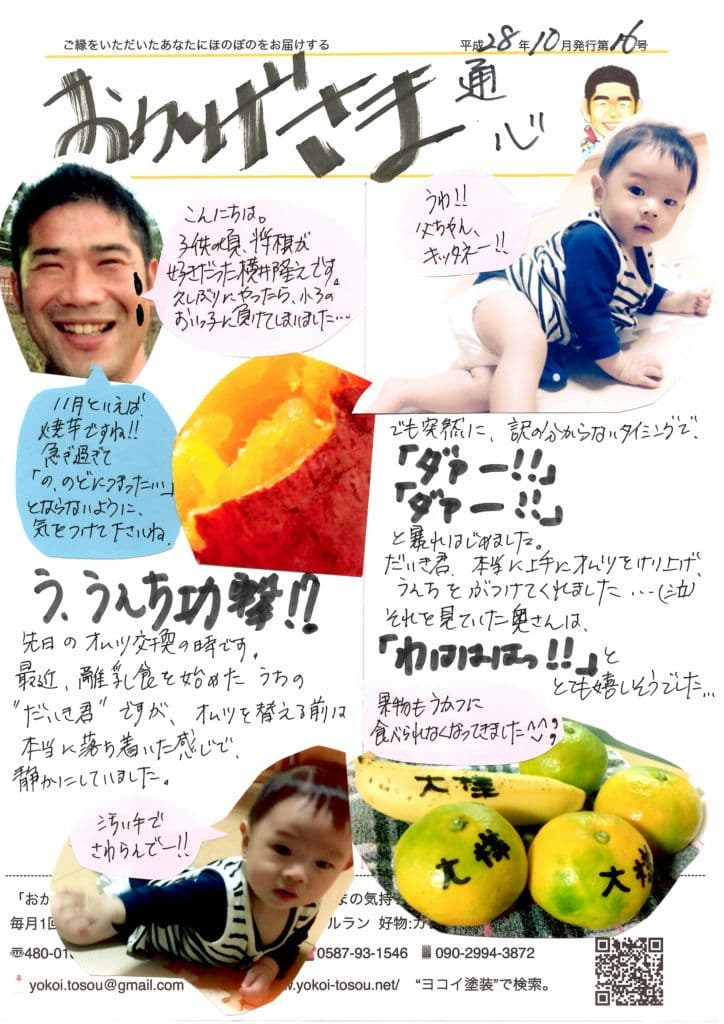 ご縁をいただいたあなたにほのぼのをお届けする
平成28年10月発行第16号
おかげさま
通心
こんにちは。
子供の頃、将棋が
好きだった横井隆之です。
久しぶりにやったら、小3の
おいっ子に負けてしまいました…
うわ!!
父ちゃん、
キッタネー!!
11月といえば、
焼芋ですね!!
急ぎ過ぎて
「の、のどにつまった…」
とならないように、
気をつけて下さいね。
う、うんち攻撃!?
先日のオムツ交換の時です。
最近、離乳食を始めたうちの
"だいき君"ですが、オムツを替える前は
本当に落ち着いた感じで、
静かにしていました。
汚い手で
さわらんでー!!
でも突然に、訳の分からないタイミングで、
「ダァー!!」
「ダァー!!」
と暴れはじめました。
だいき君、本当に上手にオムツをけり上げ、
うんちをぶつけてくれました…(泣)
それを見ていた奥さんは、
「わはははっ!!」と
とても嬉しそうでした…
果物もうかつに
食べられなくなってきました^^;
大樹
大樹
大樹
「おか
まの気持
毎月1回
ルラン 好物:カ
480-01
0587-93-1546
090-2994-3872
yokoi.tosou@gmail.com
www.yokoi-tosou.net/
"ヨコイ塗装"で検索。